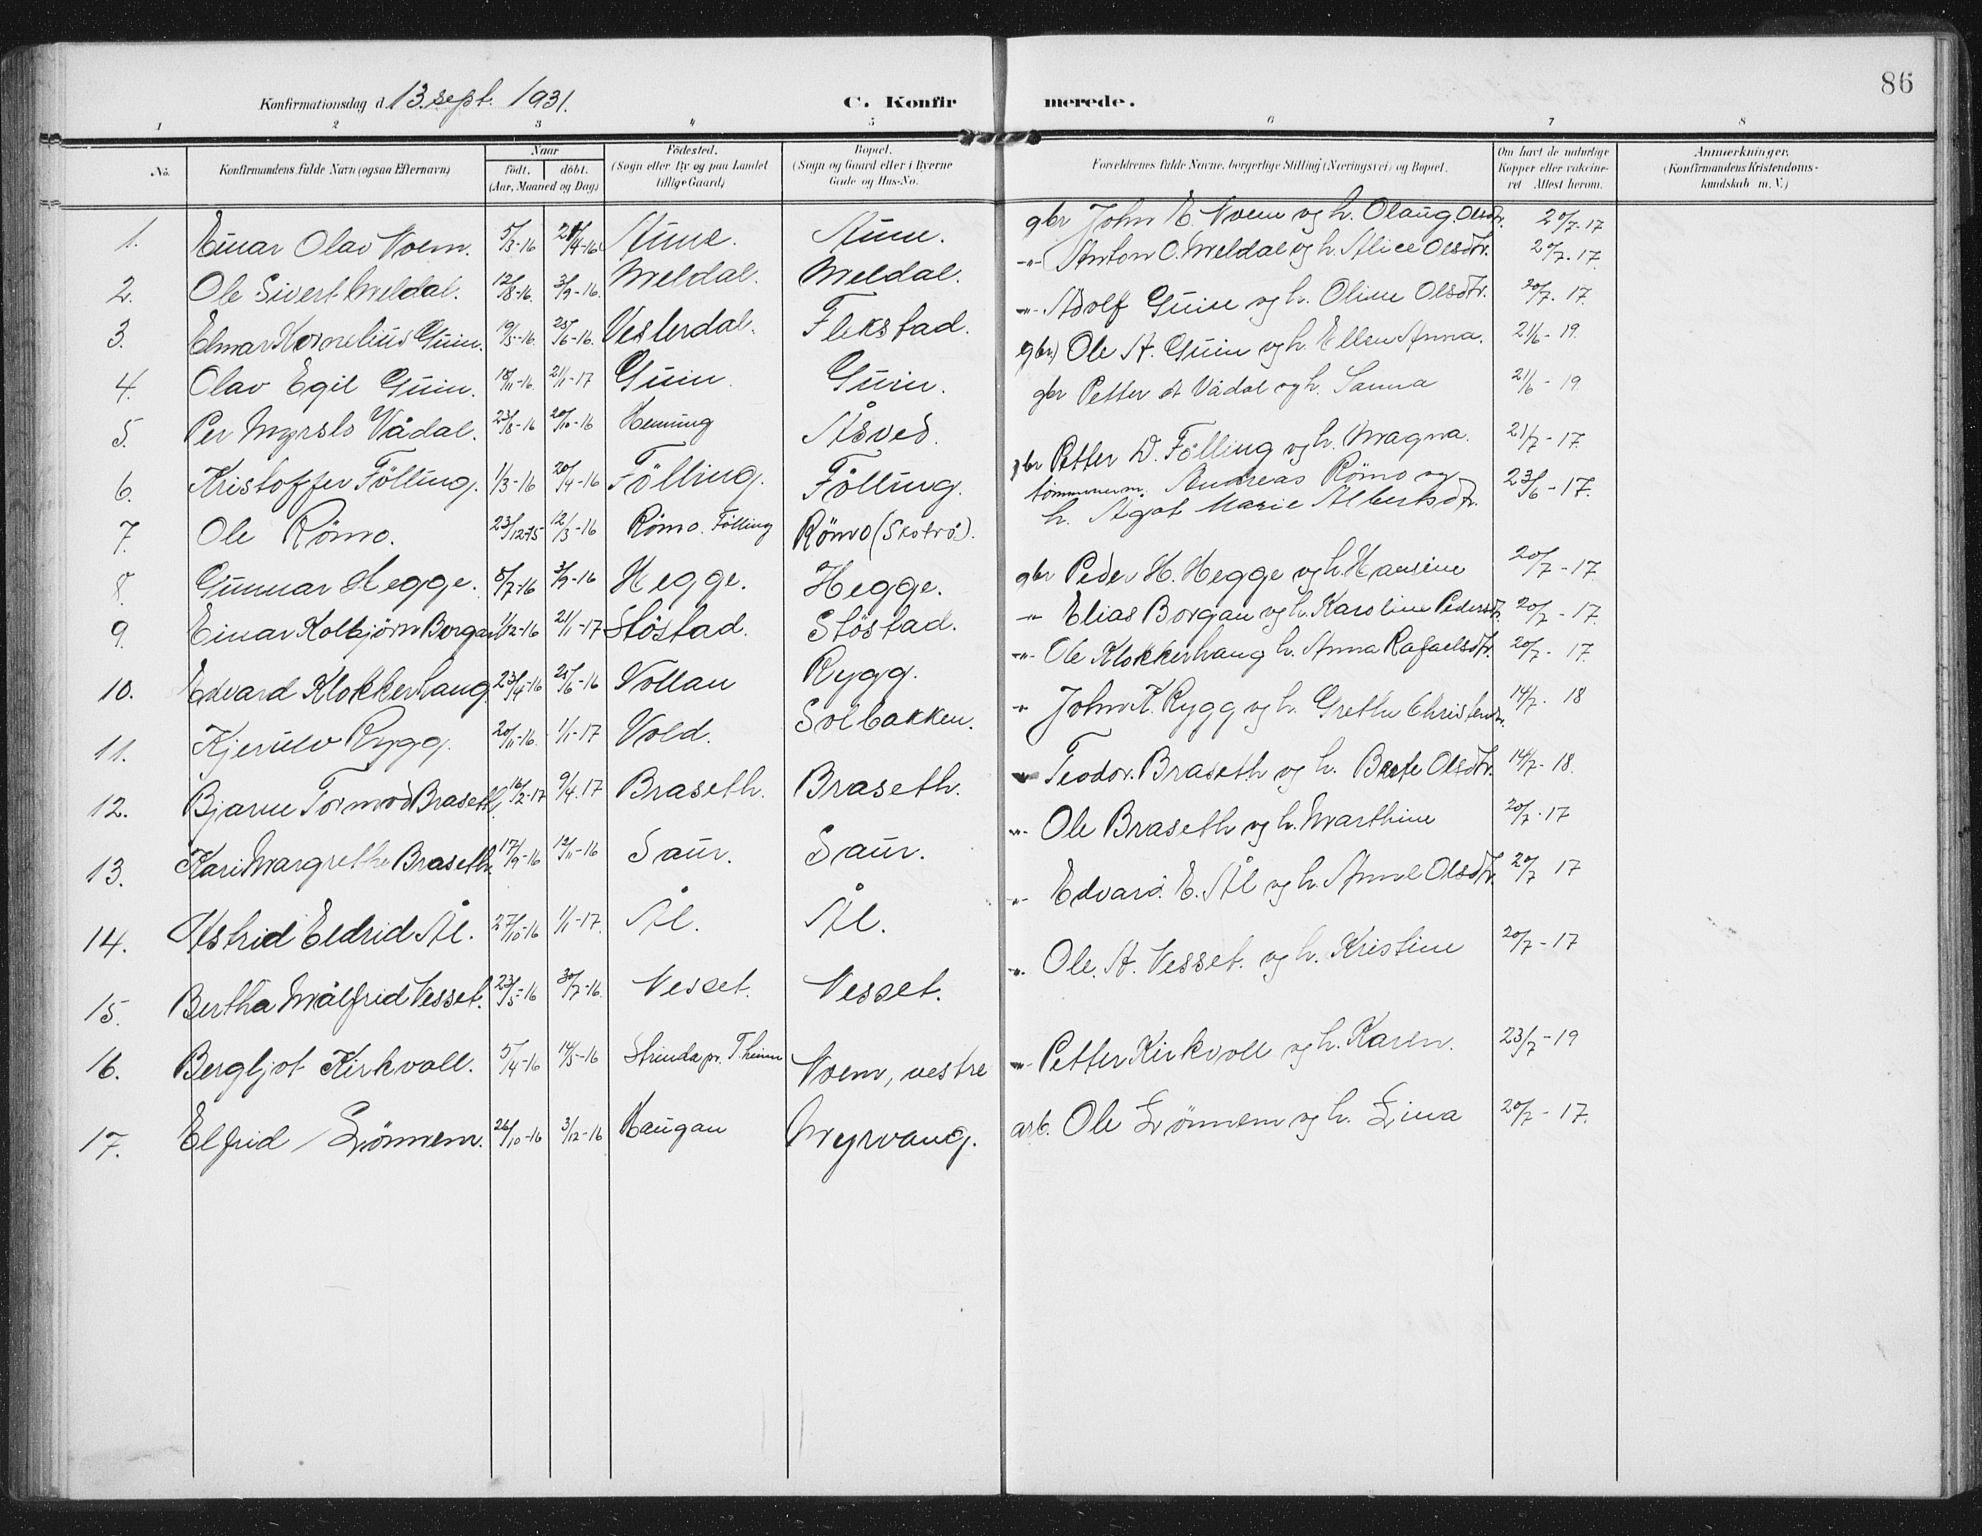 86
Konfirmationsdag d. 13. sept. 1931. C. Konfirmerede.
1 2 3 4 5 6 7 8
No. Konfirmandens fulde Navn (ogsaa Efternavn) Naar født. døbt. (Aar, Maaned og Dag) Fødested. (Sogn eller By og paa Landet tillige Gaard) Bopæl. (Sogn og Gaard eller i Byerne Gade og Hus-No. Forældrenes fulde Navne, borgerlige Stilling (Næringsvei) og Bopæl. Om havt de naturlige Kopper eller vakcineret Attest herom. Anmerkninger. (Konfirmandens Kristendomskundskab m. V.)
1. Einar Olav Noem. 5/3-16 24/4-16 Aune. Aune. gbr John E Noem og h. Olaug Olsdtr. 20/7-17
2. Ole Sivert Meldal. 12/8-16. 3/9-16. Meldal. Meldal. -"- Anton O. Meldal og h. Alice Olsdtr. 20/7-17.
3. Elmar Kornelius Guin. 19/5-16. 25/6-16. Vesterdal. Flekstad. -"- Adolf Guin og h. Oline Olsdtr. 20/7-17.
4. Olav Egil Guin. 18/11-16. 21/1-17 Guin. Guin. gbr) Ole A. Guin og h. Ellen Anna. 21/6-19.
5. Per Myrslo Vådal. 23/8-16 20/10-16 Henning Åsved. gbr Petter A Vådal og h. Sanna 21/6-19
6. Kristoffer Fölling. 1/3-16 20/4-16 Fölling. Fölling. gbr Petter D. Fölling og h. Magna. 21/7-17.
7. Ole Römo. 23/12-15 12/3-16 Römo. Fölling Römo (Skotrö). tömmerm. Andreas Römo og h. Agot Marie Albertsdtr. 23/6-17.
8. Gunnar Hegge. 8/7-16 3/9-16 Hegge. Hegge. gbr Peder H. Hegge og h. Hansine 20/7-17
9. Einar Kolbjørn Borgan 1/12-16 21/1-17 Stöstad. Stöstad. -"- Elias Borgan og h. Karoline Pedersdtr. 20/7-17.
10. Edvard Klokkerhaug. 23/4-16 25/6-16 Vollan Rygg. -"- Ole Klokkerhaug h. Anna Rafaelsdtr. 20/7-17.
11. Kjerulv Rygg. 20/11-16. 1/1-17 Vold. Solbakken. " John K. Rygg og h. Grethe Christensdtr. 14/7-18
12. Bjarne Tormod Braseth. 16/2-17 9/4.17 Braseth. Braseth. " Teodor. Braseth og h. Berte Olsdtr. 14/7-18.
13. Kari Margrethe Braseth. 17/9-16 12/11-16 Saur. Saur. -"- Ole Braseth og h. Marthine 20/7-17
14. Astrid Eldrid Ål. 27/10-16 1/1-17. Ål. Ål. -"- Edvard. E. Ål og h. Anne Olsdtr. 20/7 17
15. Bertha Målfrid Vesset. 23/5-16 30/7-16. Vesset. Vesset. " Ole. A. Vesset. og h. Kristine 20/7-17
16. Bergljot Kirkvoll. 5/4-16 14/5-16 Strinda pr. T.heim Noem, vestre -"- Petter Kirkvoll og h. Karen. 23/7-19
17. Elfrid Lönnem. 26/10-16 3/12-16 Haugan Myrvang. arb. Ole Lönnem og h. Lina 20/7-17.